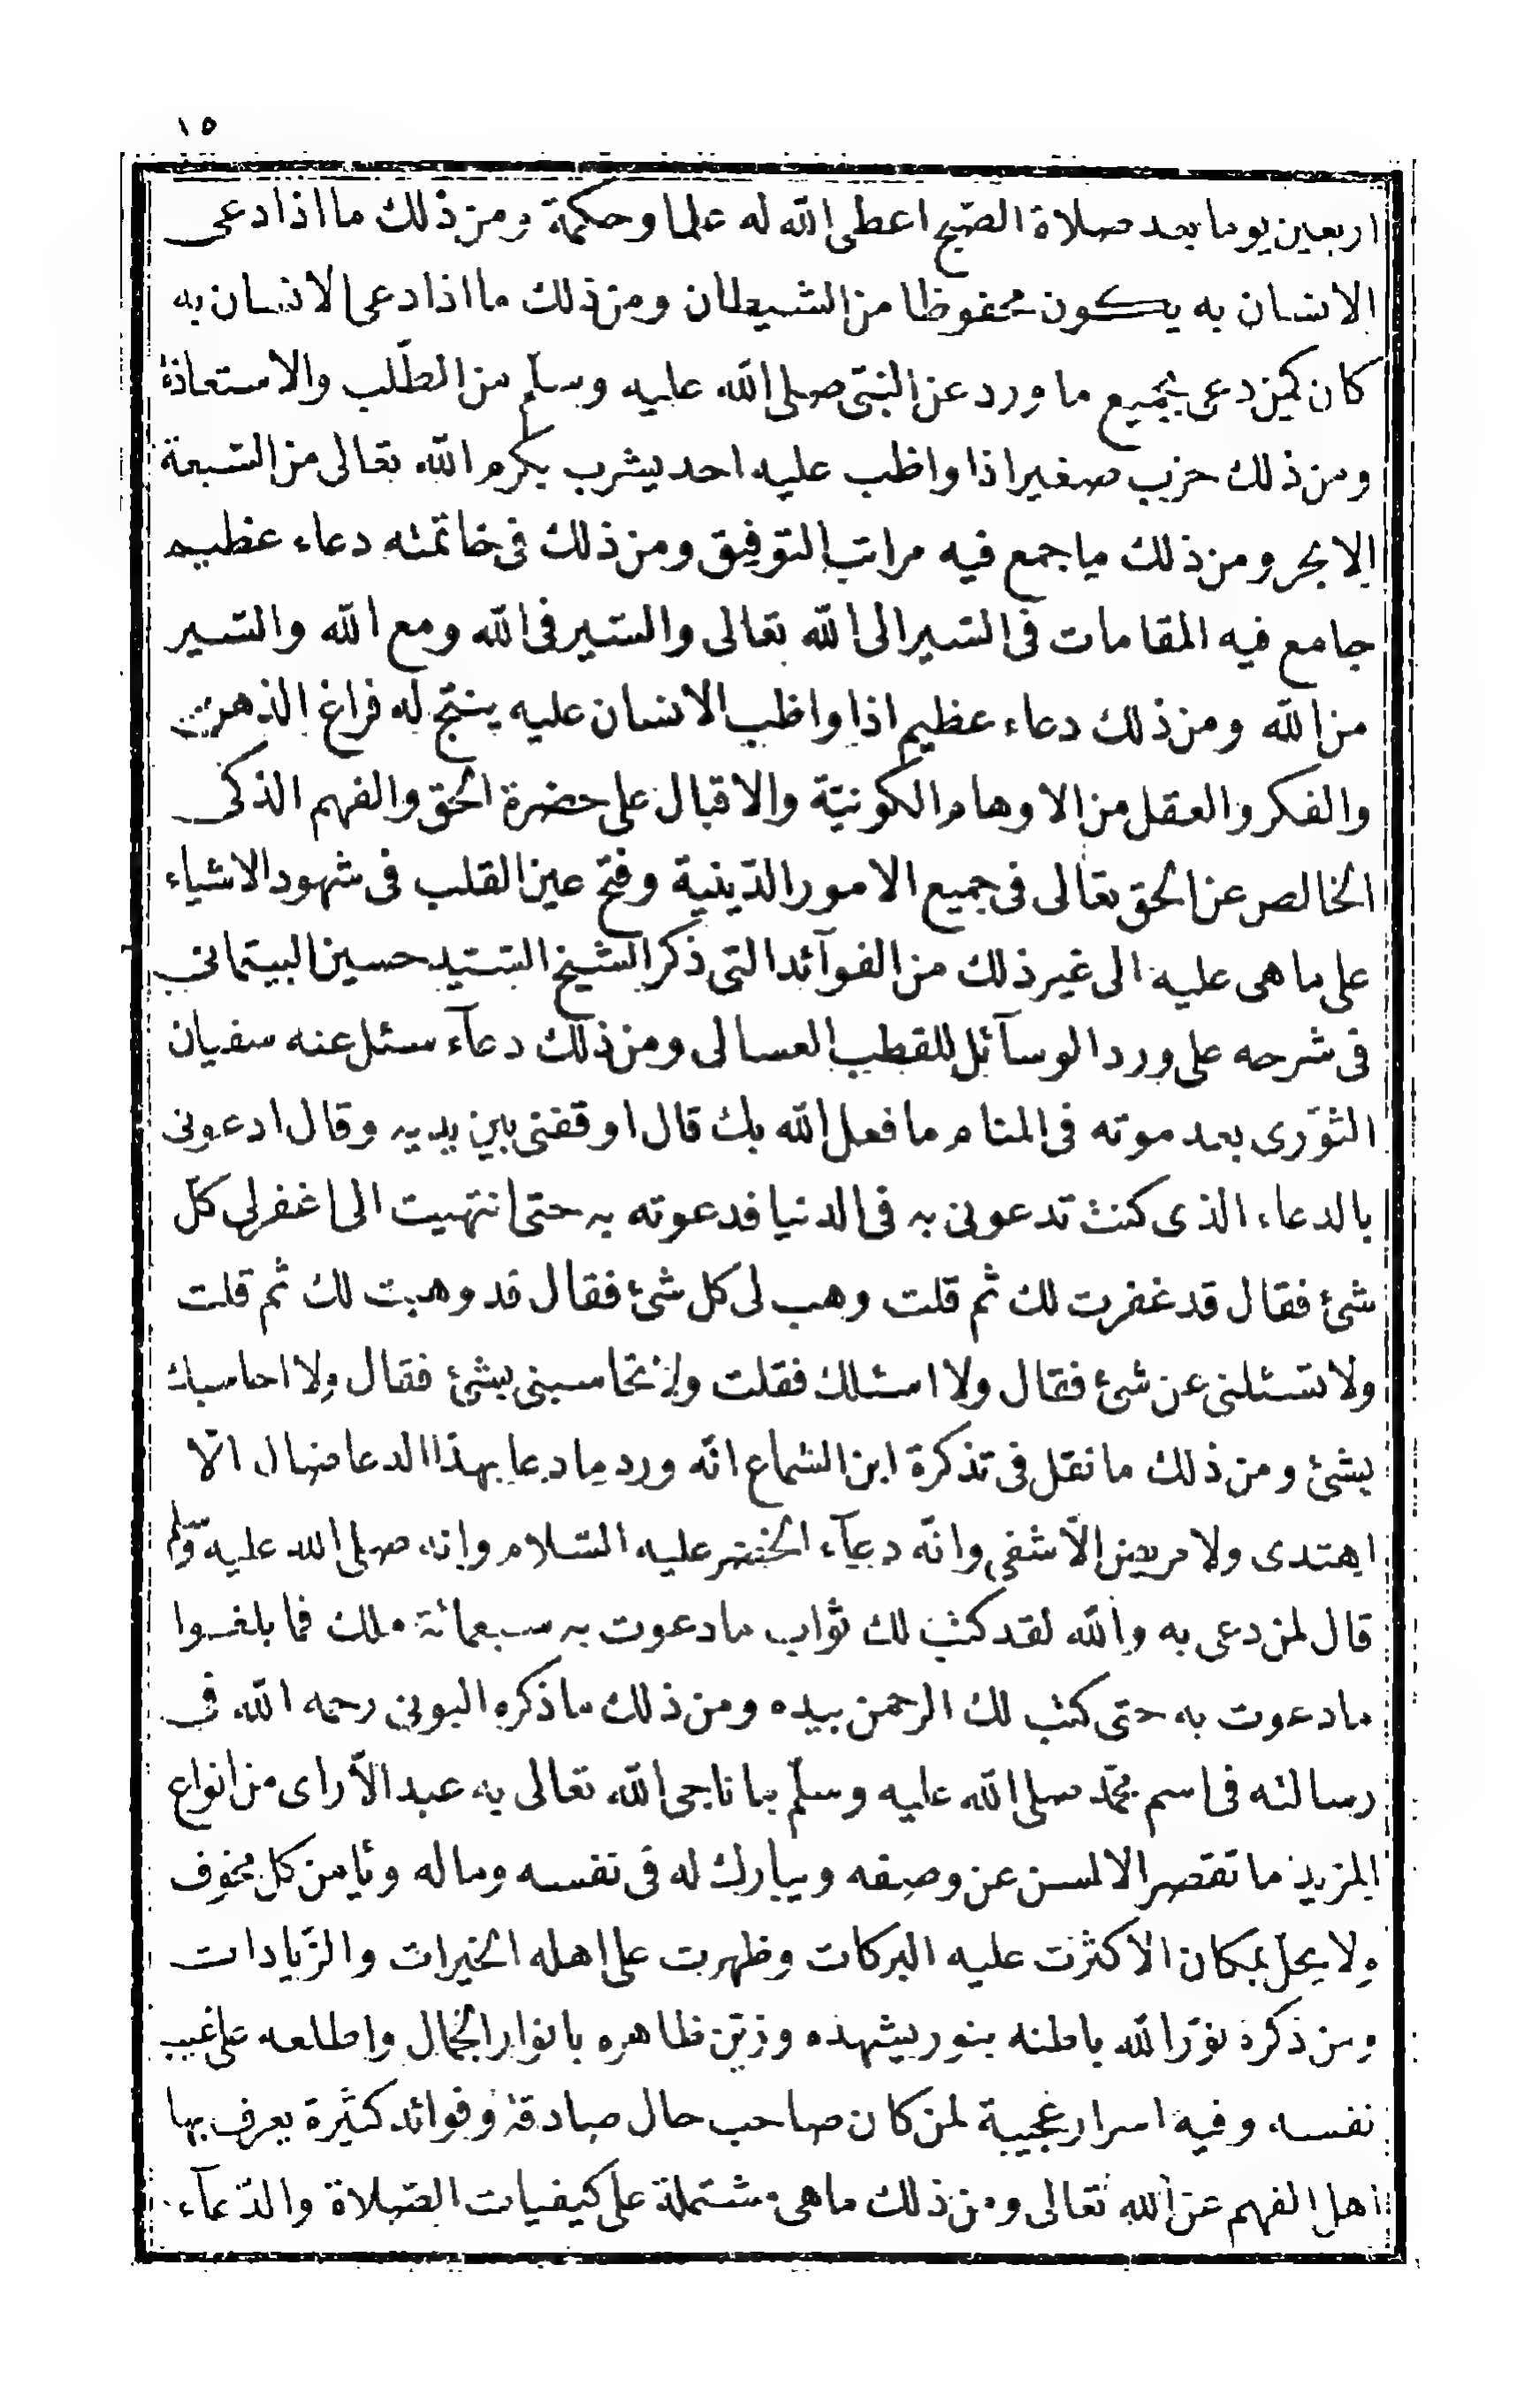 ١٥
اربعين يوما بعد صلاة الصّبح اعطى الله له علما وحكمة ومن ذلك ما اذا دعى
الانسان به يكون محفوظا من الشيطان ومن ذلك ما اذا دعى الانسان به
كان كمن دعى بجميع ما ورد عن النبّى صلى الله عليه وسلّم من الطّلب والاستعاذة
ومن ذلك حزب صغير اذا واظب عليه احد يشرب بكرم الله تعالى من السّبعة
الابحر ومن ذلك ما جمع فيه مراتب التوفيق ومن ذلك فى خاتمته دعاء عظيم
جامع فيه المقامات فى السّير الى الله تعالى والسّير فى الله ومع الله والسّير
من الله ومن ذلك دعاء عظيم اذا واظب الانسان عليه ينتج له فراغ الذهن
والفكر والعقل من الاوهام الكونيّة والاقبال على حضرة الحق والفهم الذكى
الخالص عن الحق تعالى فى جميع الامور الدّينية وفتح عين القلب فى شهود الاشياء
على ما هى عليه الى غير ذلك من الفوآئد التى ذكر الشيخ السّيد حسين البيتمانى
فى شرحه على ورد الوسآئل للقطب العسالى ومن ذلك دعآء سئل عنه سفيان
الثوّرى بعد موته فى المنام ما فعل الله بك قال اوقفنى بين يديه وقال ادعونى
بالدعاء الذى كنت تدعونى به فى الدنيا فدعوته به حتى انتهيت الى اغفر لى كلّ
شئ فقال قد غفرت لك ثم قلت وهب لى كل شئ فقال قد وهبت لك ثم قلت
ولا تسئلنى عن شئ فقال ولا اسئلك فقلت ولا تحاسبنى بشئ فقال ولا احاسبك
بشئ ومن ذلك ما نقل فى تذكرة ابن الشماع انّه ورد ما دعا بهذا الدعا ضال الّا
اهتدى ولا مريض الّا شفى وانّه دعآء الخضر عليه السّلام وانه صلى الله عليه وسّلم
قال لمن دعى به والله لقد كتب لك ثواب ما دعوت به سبعمائة ملك فما بلغوا
ما دعوت به حتى كتب لك الرحمن بيده ومن ذلك ما ذكره البونى رحمه الله فى
رسالته فى اسم محمّد صلى الله عليه وسلّم ما ناجى الله تعالى به عبد الّا راى من انواع
المزيد ما تقصر الالسن عن وصفه ويبارك له فى نفسه وماله ويأمن كل مخوف
ولا يحلّ بمكان الا كثرت عليه البركات وظهرت على اهله الخيرات والزّيادات
ومن ذكره نوّر الله باطنه بنور يشهده وزيّن ظاهره بانوار الجمال واطلعه على غيب
نفسه وفيه اسرار عجيبة لمن كان صاحب حال صادقة وفوائد كثيرة يعرف بها
اهل الفهم عن الله تعالى ومن ذلك ما هى مشتملة على كيفيات الصّلاة والدّعآء